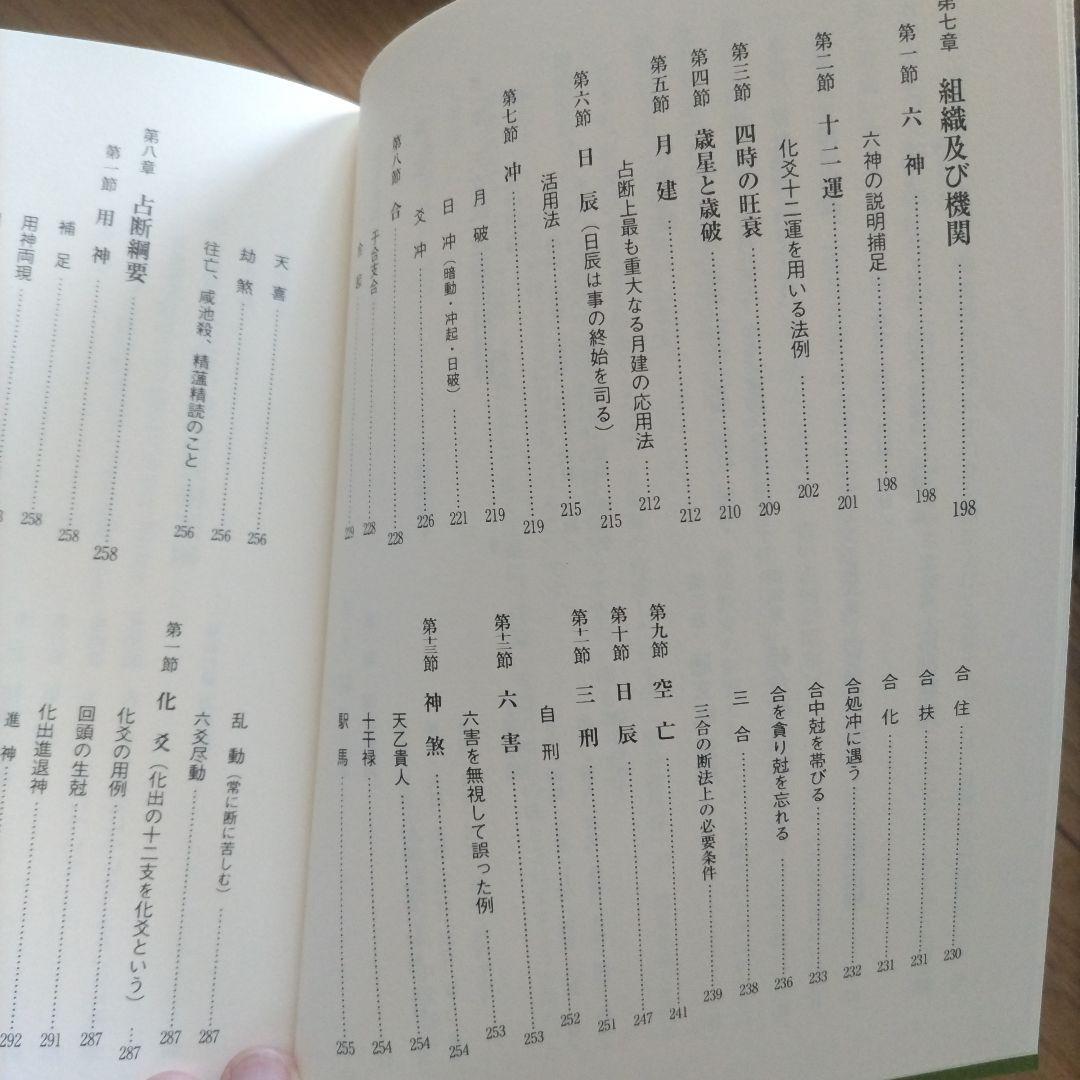 第七章 組織及び機関 198
第一節 六神 198
六神の説明捕足 198
第二節 十二運 201
化爻十二運を用いる法例 202
第三節 四時の旺衰 209
第四節 歳星と歳破 210
第五節 月建 212
占断上最も重大なる月建の応用法 212
第六節 日辰(日辰は事の終始を司る) 215
活用法 215
第七節 冲 219
月破 219
日冲(暗動・冲起・日破) 221
爻冲 226
第八節 合 228
干合支合 228
229
合住 230
合扶 231
合化 231
合処冲に遇う 232
合中尅を帯びる 233
合を貪り尅を忘れる 236
三合 238
三合の断法上の必要条件 239
第九節 空亡 241
第十節 日辰 247
第十一節 三刑 251
自刑 252
第十二節 六害 253
六害を無視して誤った例 253
第十三節 神煞 254
天乙貴人 254
十干禄 254
駅馬 255
天喜 256
劫煞 256
往亡、咸池殺、精薀精読のこと 256
第八章 占断綱要
第一節 用神 258
補足 258
用神両現 258
乱動(常に断に苦しむ) 287
六爻尽動 287
第一節 化爻(化出の十二支を化爻という) 287
化爻の用例 287
回頭の生尅 291
化出進退神 292
進神